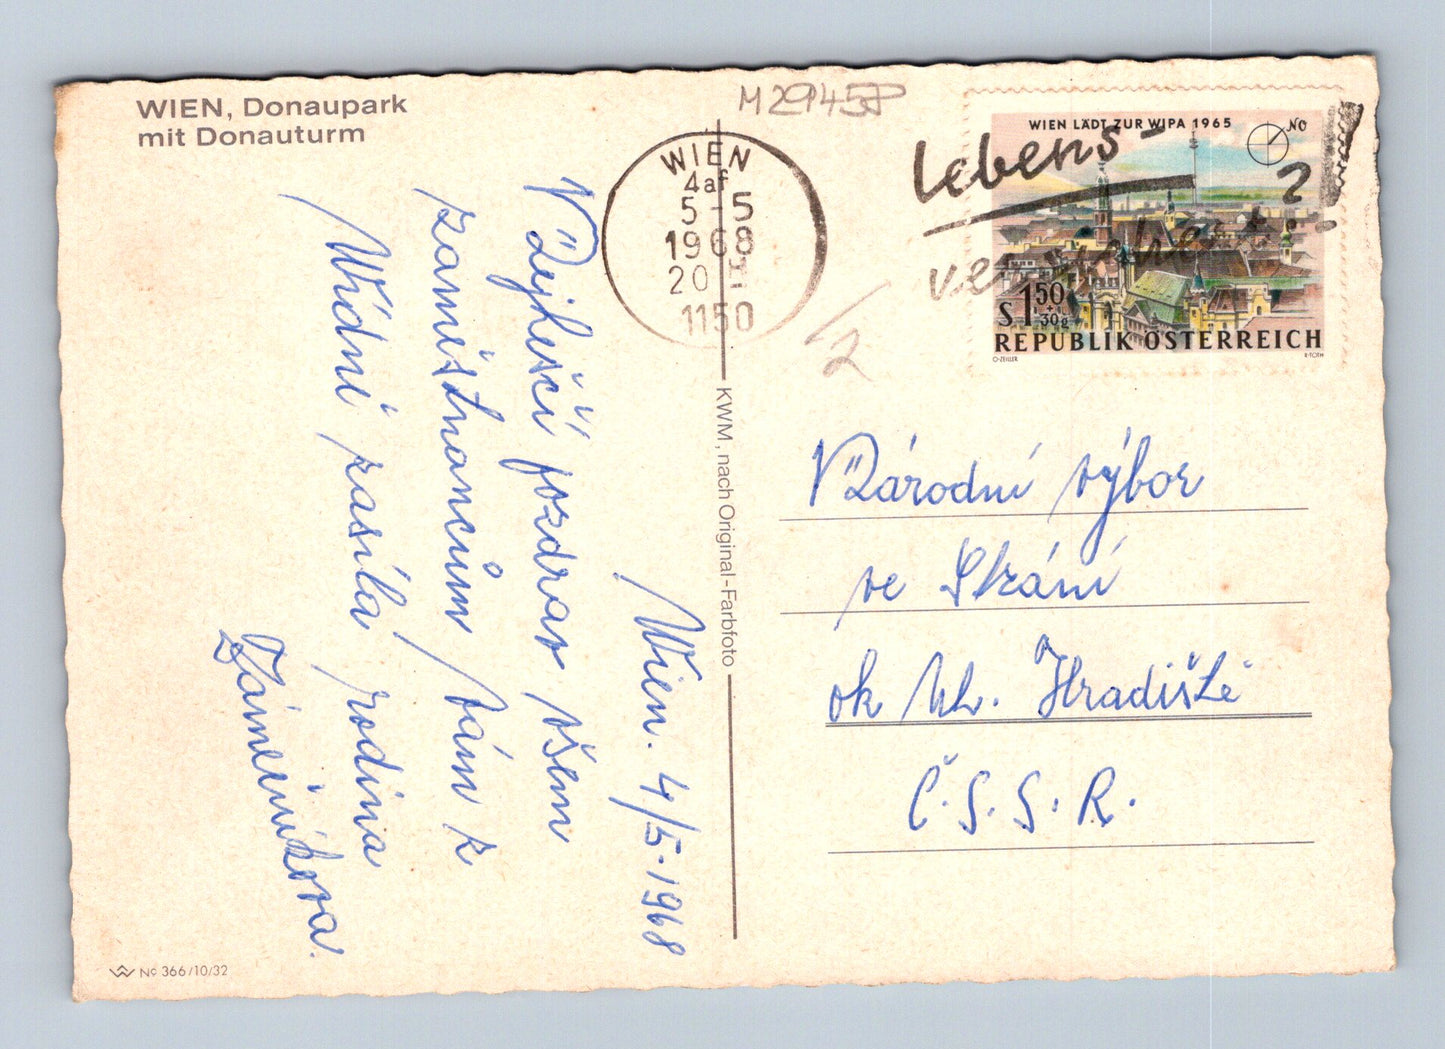 WIEN, Donaupark
mit Donauturm
M29145P
WIEN
4af
5-5
1968
20
1150
Lebens-
?
WIEN LÄDT ZUR WIPA 1965
NO
S 1 50
+
30g
REPUBLIK ÖSTERREICH
O·ZEILLER
R·TOTH
1/2
Wien. 4/5·1968
Nejlepší pozdrav všem
zaměstnancům / vám k
Wídni zasílá rodina
Zámečníkova.
KWM, nach Original-Farbfoto
Národní výbor
ve Stráni
ok Uh. Hradiště
Č.S.S.R.
Nc 366/10/32